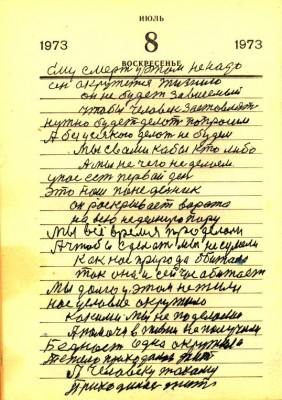 ИЮЛЬ
1973 8 1973
ВОСКРЕСЕНЬЕ
ему смерт у этом не надо
он окружется жизнию
он не будет зависемый
чтобы человек заставлять
нужно будет делот попросим
А без всякого делот не будем
Мы с вами кабы кто либо
А мы не чего не делоем
у нас ест первый ден
это наш понеделник
он роскрывает ворота
на всю неделную пору
Мы всё время проделали
А чтоб и сделат мы не сумели
Как нас природа обитала
так она и сейчас обитает
Мы долго у этом не жили
нас условие окружило
какими мы не поделоли
А помоч в жизни не получили
Бедност одна окружила
тяжело приходится жит
А человеку такому
приходится жит